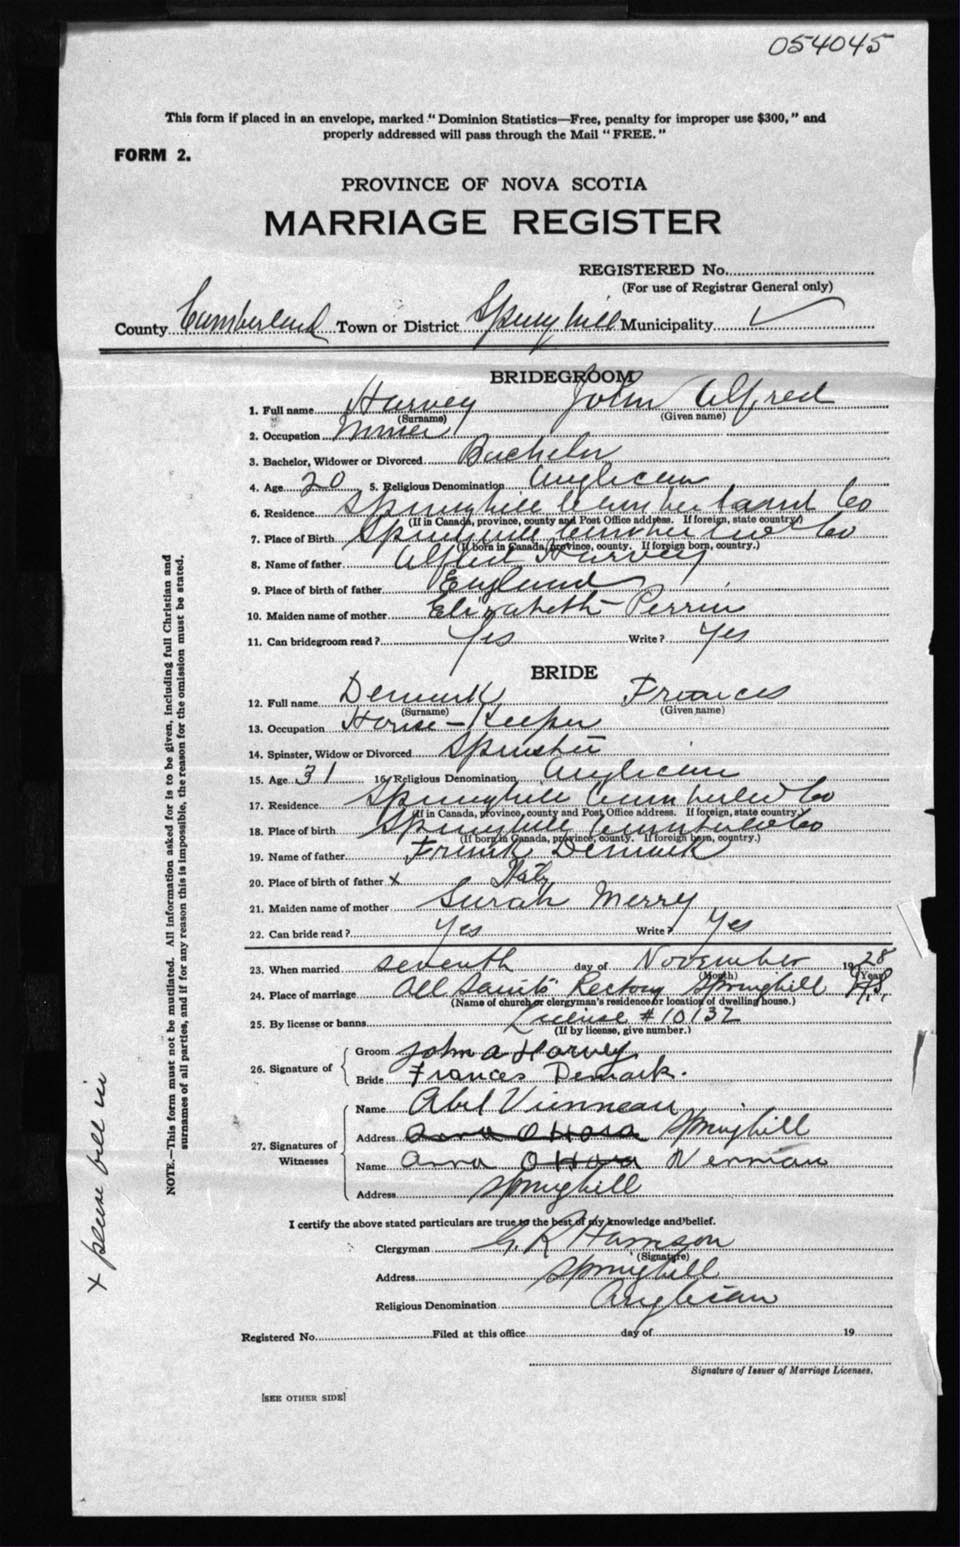 054045
This form if placed in an envelope, marked "Dominion Statistics—Free, penalty for improper use $300," and
properly addressed will pass through the Mail "FREE."
FORM 2.
PROVINCE OF NOVA SCOTIA
MARRIAGE REGISTER
REGISTERED No.
(For use of Registrar General only)
County Cumberland Town or District Springhill Municipality ✓
BRIDEGROOM
1. Full name Harvey John Alfred
(Surname) (Given name)
2. Occupation Miner
3. Bachelor, Widower or Divorced Bachelor
4. Age 20 5. Religious Denomination Anglican
6. Residence Springhill Cumberland Co
(If in Canada, province, county and Post Office address. If foreign, state country)
7. Place of Birth Springhill Cumberland Co
(If born in Canada, province, county. If foreign born, country.)
8. Name of father Alfred Harvey
9. Place of birth of father England
10. Maiden name of mother Elizabeth Perrin
11. Can bridegroom read? Yes Write? Yes
BRIDE
12. Full name Demark Frances
(Surname) (Given name)
13. Occupation House-Keeper
14. Spinster, Widow or Divorced Spinster
15. Age 31 16. Religious Denomination Anglican
17. Residence Springhill Cumberland Co
(If in Canada, province, county and Post Office address. If foreign, state country)
18. Place of birth Springhill Cumberland Co
(If born in Canada, province, county. If foreign born, country.)
19. Name of father Frank Demark
20. Place of birth of father x Italy
21. Maiden name of mother Sarah Merry
22. Can bride read? Yes Write? Yes
23. When married seventh day of November 1928
(Month) (Year)
24. Place of marriage All Saints' Rectory Springhill N.S.
(Name of church or clergyman's residence or location of dwelling house.)
25. By license or banns License #10132
(If by license, give number.)
26. Signature of
Groom John A Harvey
Bride Frances Demark.
27. Signatures of Witnesses
Name Abel Vienneau
Address Anna O'Hara Springhill
Name Anna O'Hara Nerman
Address Springhill
I certify the above stated particulars are true to the best of my knowledge and belief.
Clergyman G. R Harrison
(Signature)
Address Springhill
Religious Denomination Anglican
Registered No. Filed at this office day of 19
Signature of Issuer of Marriage Licenses.
[SEE OTHER SIDE]
NOTE.—This form must not be mutilated. All information asked for is to be given, including full Christian and
surnames of all parties, and if for any reason this is impossible, the reason for the omission must be stated.
x please fill in